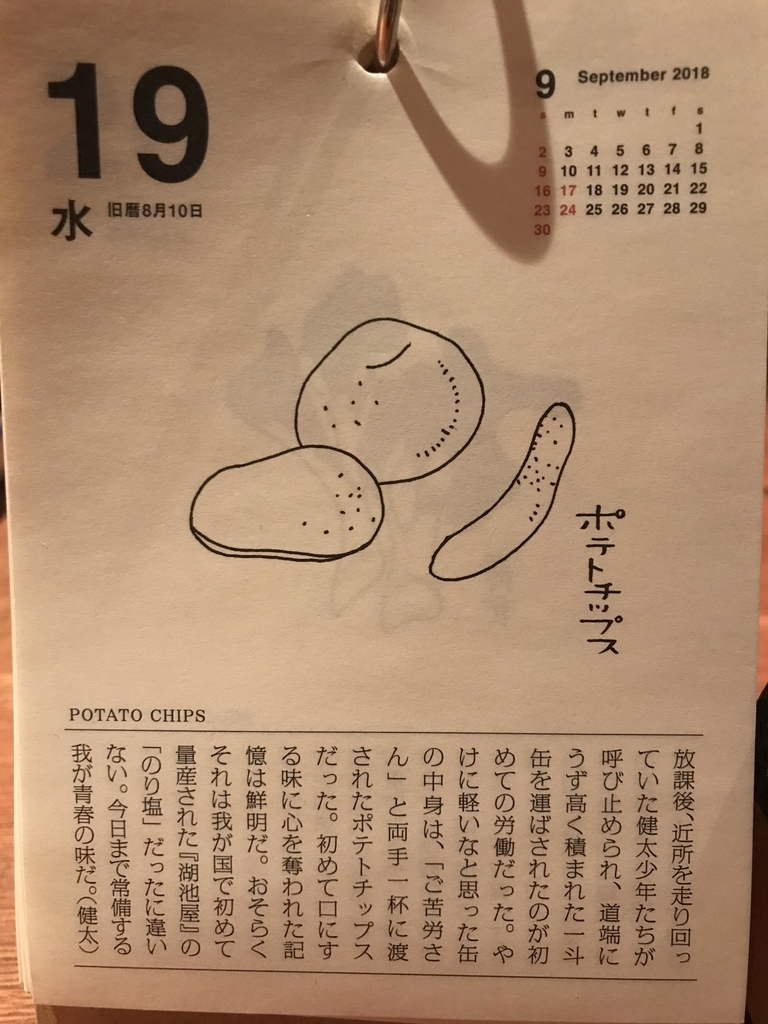 19
水
旧暦8月10日
9
September 2018
s m t w t f s
1
2 3 4 5 6 7 8
9 10 11 12 13 14 15
16 17 18 19 20 21 22
23 24 25 26 27 28 29
30
ポテトチップス
POTATO CHIPS
放課後、近所を走り回っ
ていた健太少年たちが
呼び止められ、道端に
うず高く積まれた一斗
缶を運ばされたのが初
めての労働だった。や
けに軽いなと思った缶
の中身は、「ご苦労さ
ん」と両手一杯に渡
されたポテトチップス
だった。初めて口にす
る味に心を奪われた記
憶は鮮明だ。おそらく
それは我が国で初めて
量産された『湖池屋』の
「のり塩」だったに違い
ない。今日まで常備する
我が青春の味だ。(健太)